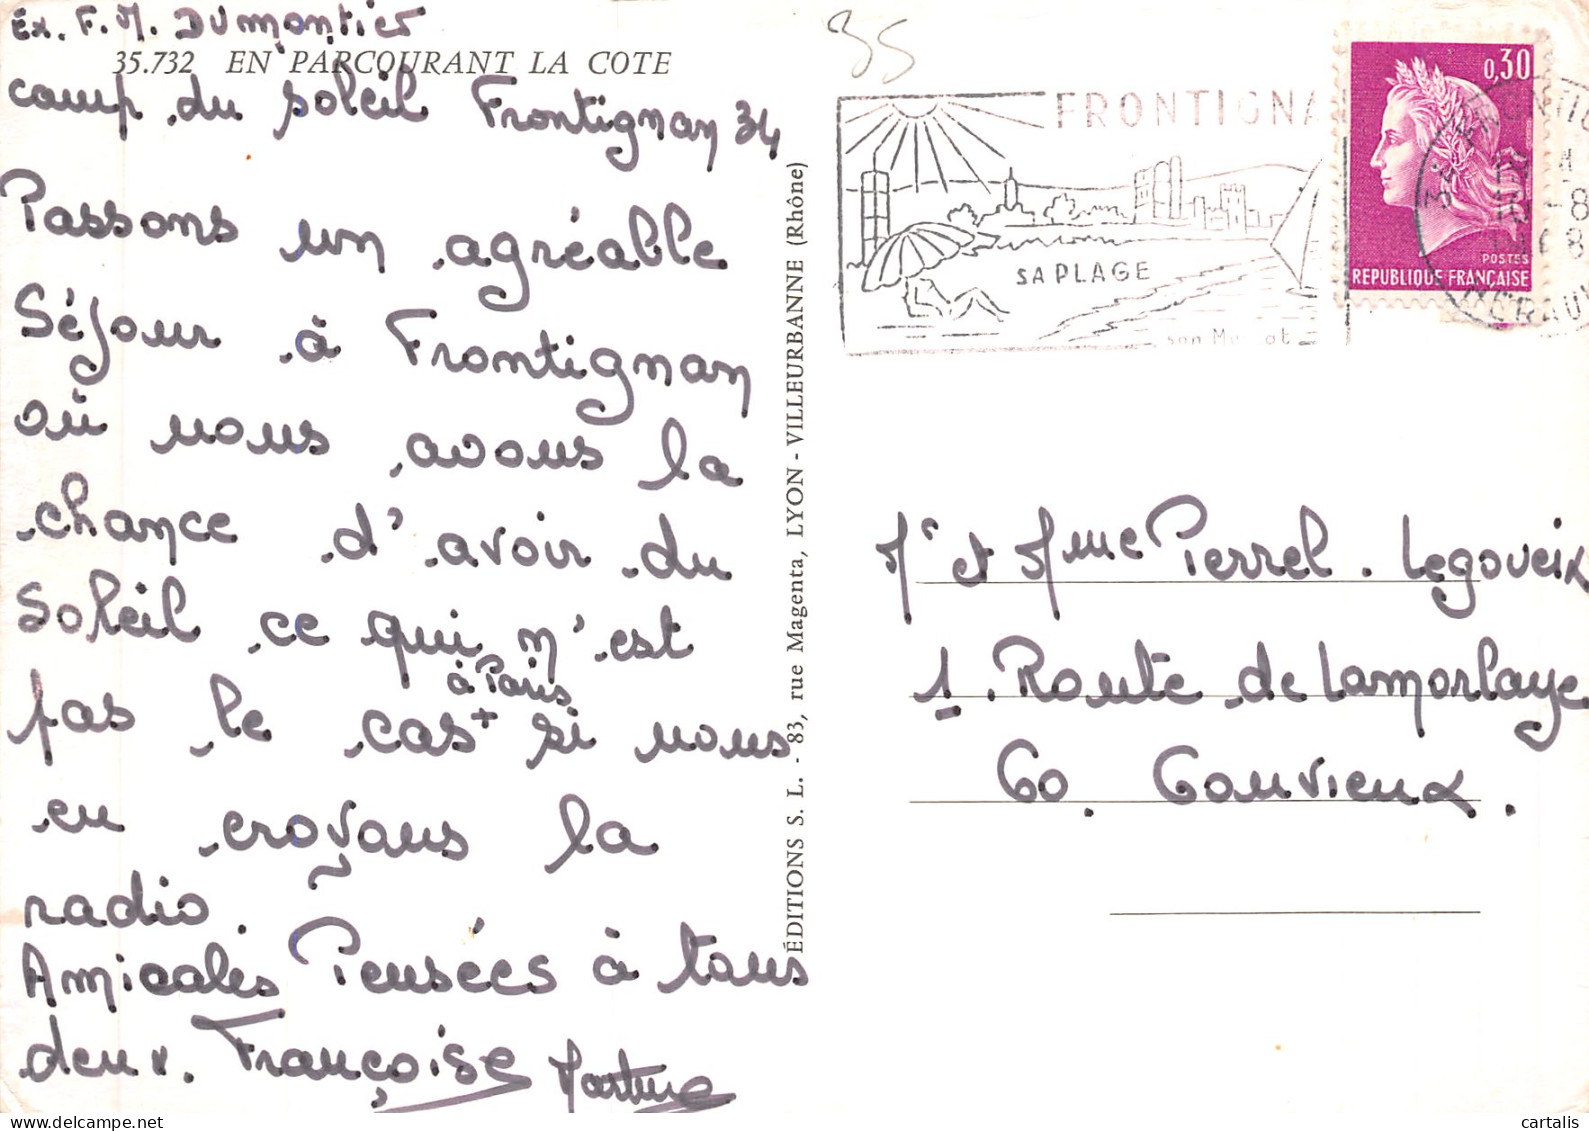 Ex. F. M. Dumontier
35.732 EN PARCOURANT LA COTE
camp du soleil Frontignan 34
Passons un agréable
Séjour à Frontignan
où nous avons la
chance d'avoir du
Soleil ce qui n'est
pas le cas + si nous
à Paris
en croyons la
radio.
Amicales Pensées à tous
deux. Françoise Martine
ÉDITIONS S. L. - 83, rue Magenta, LYON - VILLEURBANNE (Rhône)
35
FRONTIGNA
SA PLAGE
son Mu
0,30
POSTES
REPUBLIQUE FRANÇAISE
34
HERAU
Mr et Mme Pierrel. Legoveix
1. Route de Lamorlaye
60. Gouvieux.
cartalis